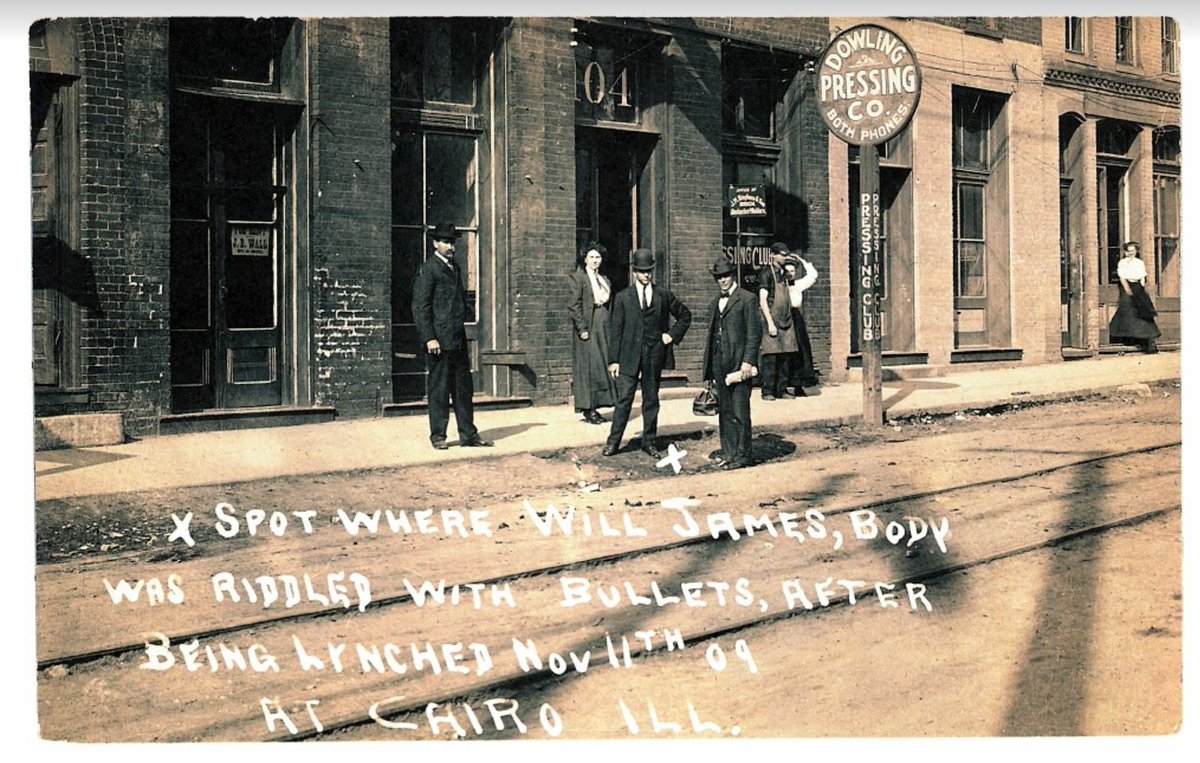 DOWLING
PRESSING
CO.
BOTH PHONES.
04
J.B. WALL
OFFICE OF
PRESSING CLUB
PRESSING CLUB
SING CLUB
X
X SPOT WHERE WILL JAMES, BODY
WAS RIDDLED WITH BULLETS, AFTER
BEING LYNCHED NOV 11TH 09
AT CAIRO ILL.